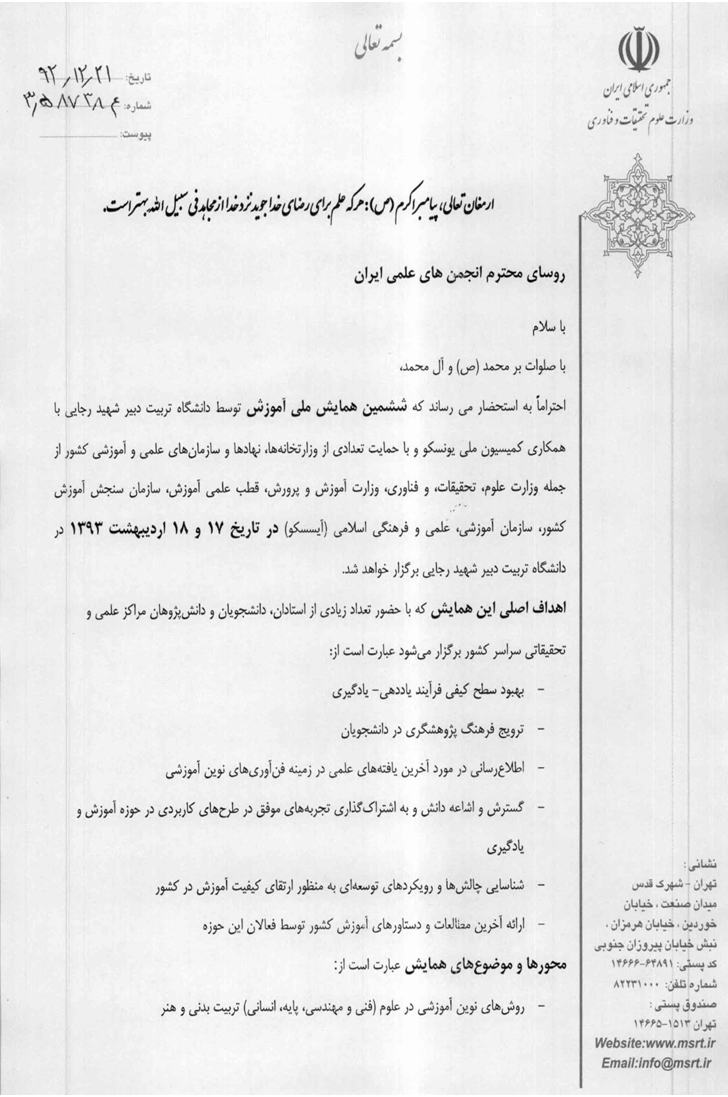 بسمه تعالی
جمهوری اسلامی ایران
وزارت علوم تحقیقات و فناوری
تاریخ: ۹۲,۱۲,۲۱
شماره:
پیوست:
ارمغان تعالی، پیامبر اکرم (ص): هر که علم برای رضای خدا جوید نزد خدا از مجاهد فی سبیل الله بهتر است.
روسای محترم انجمن های علمی ایران
با سلام
با صلوات بر محمد (ص) و آل محمد،
احتراماً به استحضار می رساند که ششمین همایش ملی آموزش توسط دانشگاه تربیت دبیر شهید رجایی با
همکاری کمیسیون ملی یونسکو و با حمایت تعدادی از وزارتخانه‌ها، نهادها و سازمان‌های علمی و آموزشی کشور از
جمله وزارت علوم، تحقیقات، و فناوری، وزارت آموزش و پرورش، قطب علمی آموزش، سازمان سنجش آموزش
کشور، سازمان آموزشی، علمی و فرهنگی اسلامی (آیسسکو) در تاریخ ۱۷ و ۱۸ اردیبهشت ۱۳۹۳ در
دانشگاه تربیت دبیر شهید رجایی برگزار خواهد شد.
اهداف اصلی این همایش که با حضور تعداد زیادی از استادان، دانشجویان و دانش‌پژوهان مراکز علمی و
تحقیقاتی سراسر کشور برگزار می‌شود عبارت است از:
- بهبود سطح کیفی فرآیند یاددهی- یادگیری
- ترویج فرهنگ پژوهشگری در دانشجویان
- اطلاع‌رسانی در مورد آخرین یافته‌های علمی در زمینه فن‌آوری‌های نوین آموزشی
- گسترش و اشاعه دانش و به اشتراک‌گذاری تجربه‌های موفق در طرح‌های کاربردی در حوزه آموزش و
یادگیری
- شناسایی چالش‌ها و رویکردهای توسعه‌ای به منظور ارتقای کیفیت آموزش در کشور
- ارائه آخرین مطالعات و دستاورهای آموزش کشور توسط فعالان این حوزه
محورها و موضوع‌های همایش عبارت است از:
- روش‌های نوین آموزشی در علوم (فنی و مهندسی، پایه، انسانی) تربیت بدنی و هنر
نشانی:
تهران - شهرک قدس
میدان صنعت، خیابان
خوردین، خیابان هرمزان،
نبش خیابان پیروزان جنوبی
کد پستی: ۱۴۶۶۶-۶۴۸۹۱
شماره تلفن: ۸۲۲۳۱۰۰۰
صندوق پستی:
تهران ۱۵۱۳-۱۴۶۶۵
Website:www.msrt.ir
Email:info@msrt.ir